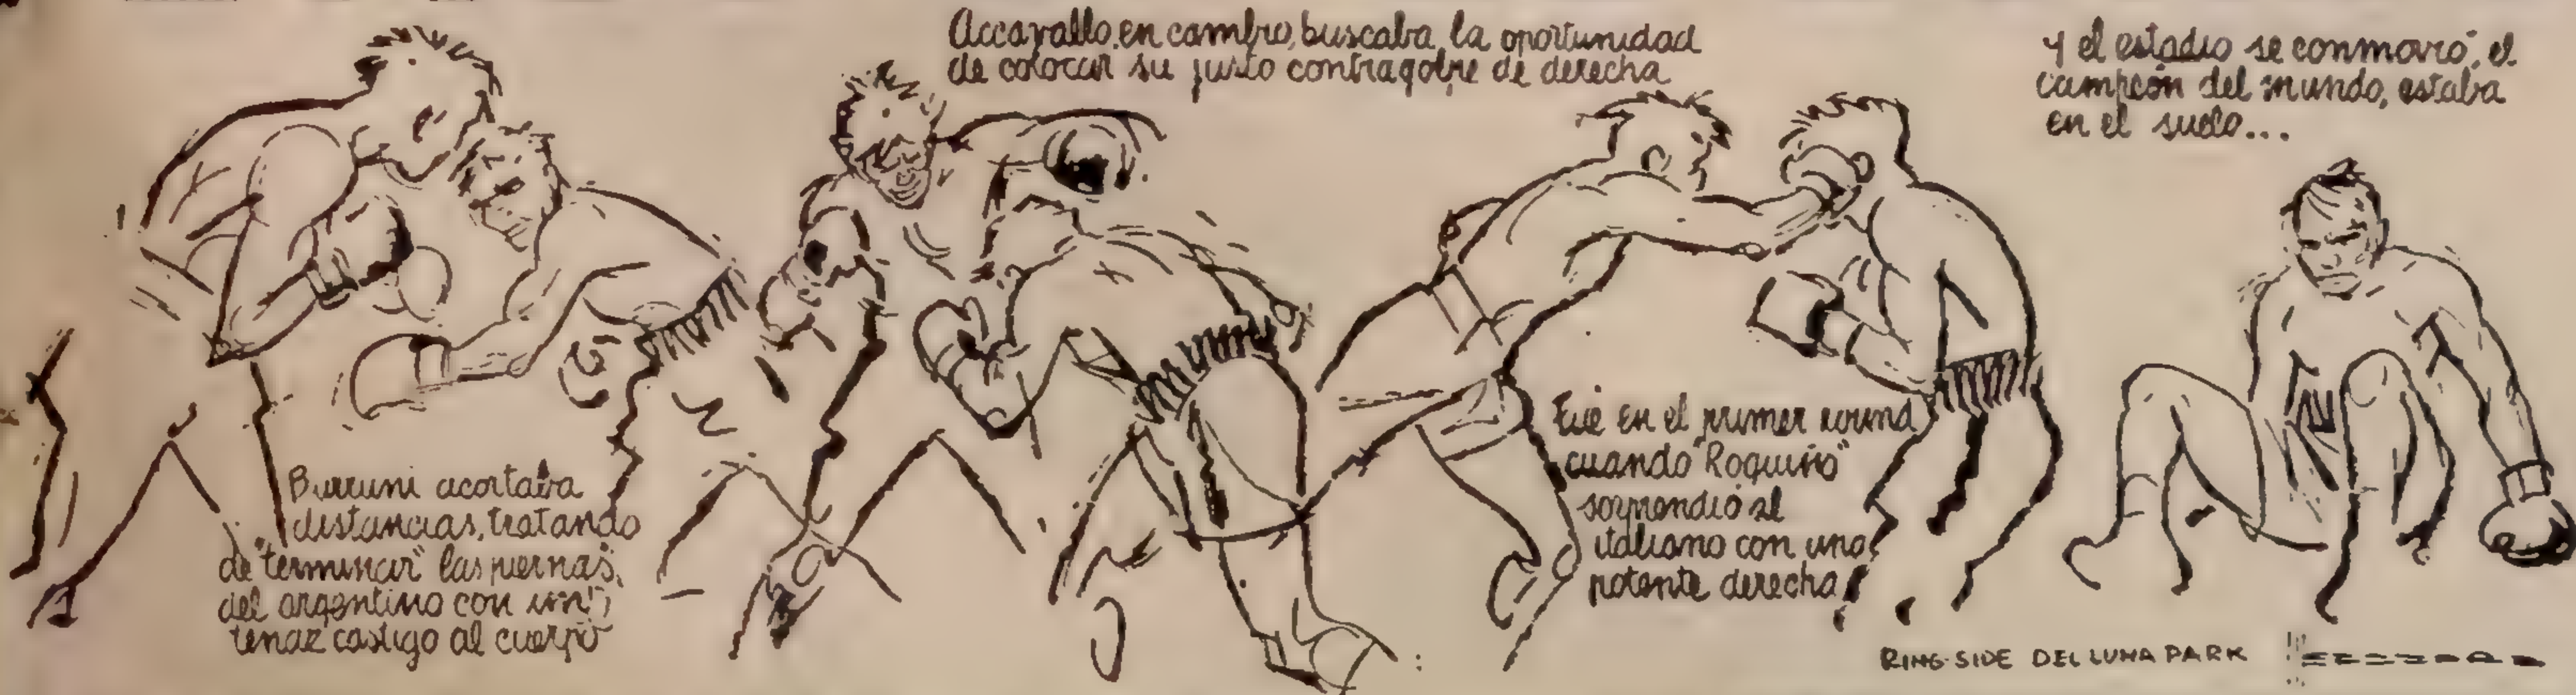 Burruni acortaba
distancias, tratando
de "terminar" las piernas
del argentino con un
tenaz castigo al cuerpo
Accavallo, en cambio, buscaba la oportunidad
de colocar su justo contragolpe de derecha
Fue en el primer round
cuando "Roquiño"
sorprendió al
italiano con una
potente derecha
y el estadio se conmovió; el
campeón del mundo, estaba
en el suelo...
RING-SIDE DEL LUNA PARK